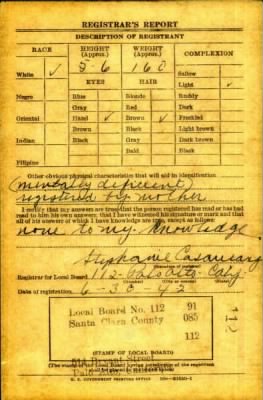 REGISTRAR'S REPORT
DESCRIPTION OF REGISTRANT
RACE
HEIGHT (Approx.)
WEIGHT (Approx.)
COMPLEXION
White ✓
5-6
160
Sallow
EYES
HAIR
Light ✓
Negro
Blue
Blonde
Ruddy
Gray
Red
Dark
Oriental
Hazel ✓
Brown ✓
Freckled
Brown
Black
Light brown
Indian
Black
Gray
Dark brown
Bald
Black
Filipino
Other obvious physical characteristics that will aid in identification
(mentally deficient)
registered by mother
I certify that my answers are true; that the person registered has read or has had
read to him his own answers; that I have witnessed his signature or mark and that
all of his answers of which I have knowledge are true, except as follows:
none to my knowledge
Stephanie
Registrar for Local Board 112 Palo Alto Calif
Date of registration 6-30-42
Local Board No. 112 91
Santa Clara County 085
112
(STAMP OF LOCAL BOARD)
Bryant Street
(The stamp of the Local Board having jurisdiction of the registrant
shall be placed in the above space.)
Palo
U. S. GOVERNMENT PRINTING OFFICE